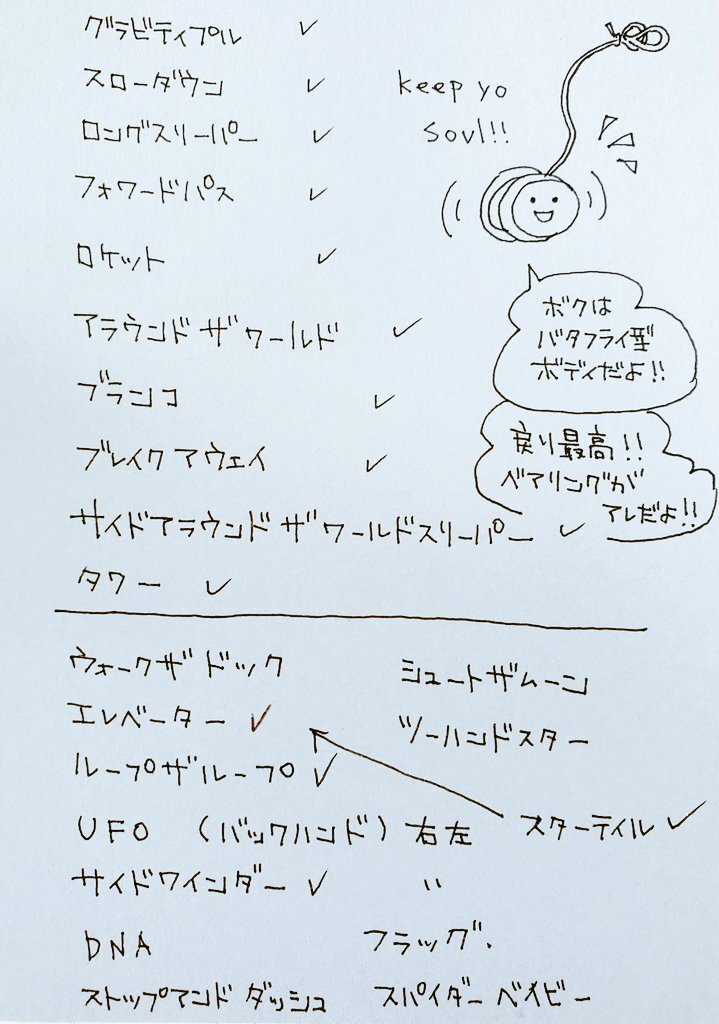 グラビティプル ✓
スローダウン ✓
keep yo
ロングスリーパー ✓
soul!!
フォワードパス ✓
ロケット ✓
ボクは
バタフライ型
ボディだよ!!
アラウンド ザ ワールド ✓
ブランコ ✓
戻り最高!!
ベアリングが
アレだよ!!
ブレイク アウェイ ✓
サイドアラウンド ザ ワールドスリーパー ✓
タワー ✓
ウォークザ ドック
シュートザムーン
エレベーター ✓
ツーハンドスター
ループザループ ✓
UFO (バックハンド) 右左
スターテイル ✓
サイドワインダー ✓ 〃
DNA
フラッグ.
ストップアンド ダッシュ
スパイダー ベイビー